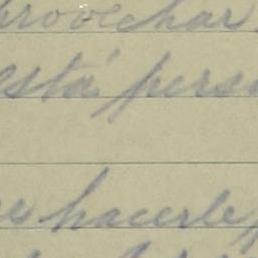 provechar
está perso
es hacerle